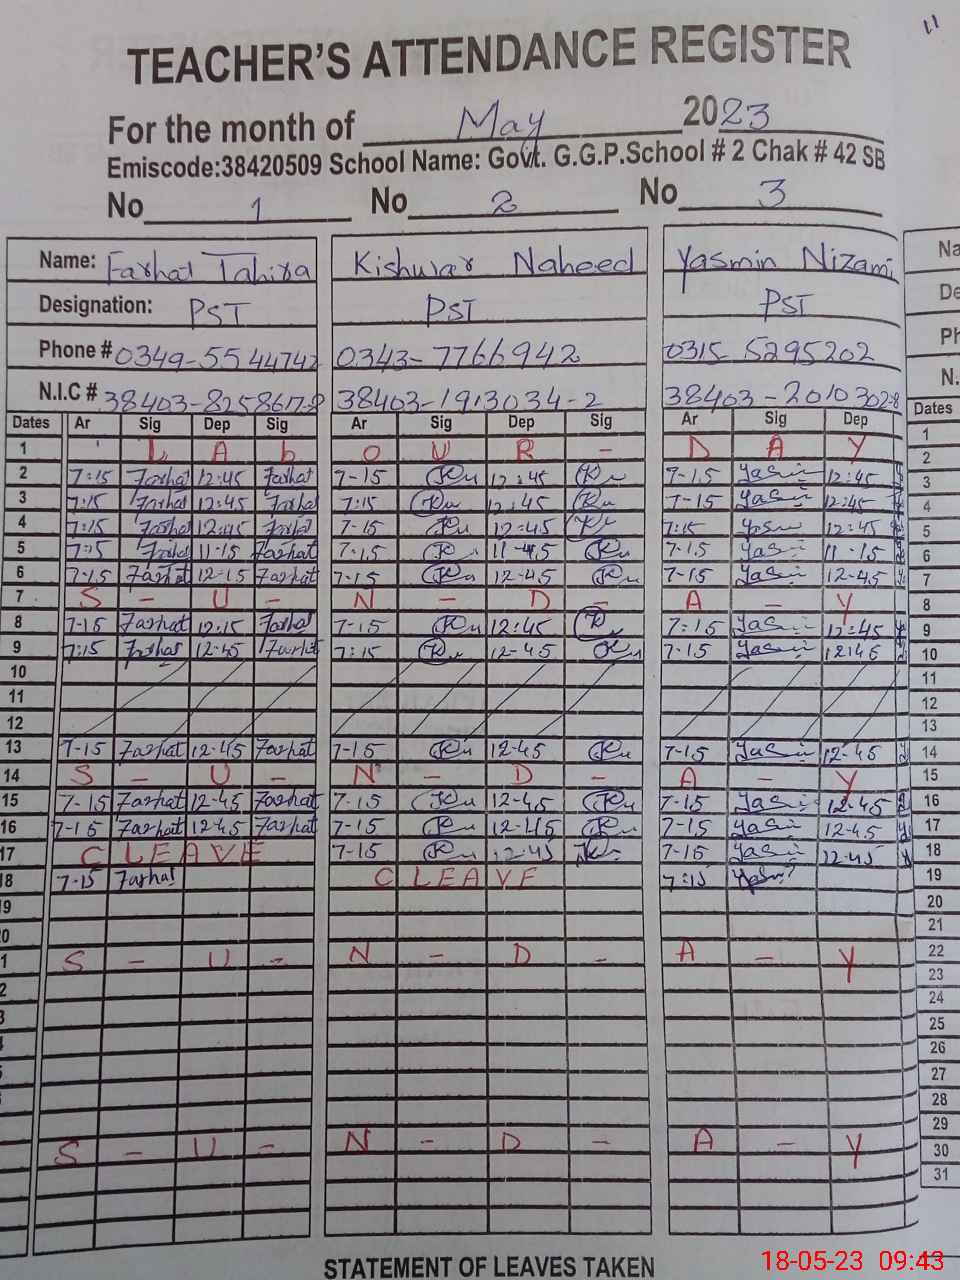 11
TEACHER'S ATTENDANCE REGISTER
For the month of May 2023
Emiscode:38420509 School Name: Govt. G.G.P.School # 2 Chak # 42 SB
No 1 No 2 No 3
Name: Farhat Tahira Kishwar Naheed Yasmin Nizami Na
Designation: PST PST PST De
Phone # 0349-5544742 0343-7766942 0315 5295202 Ph
N.I.C # 38403-8258617-8 38403-1913034-2 38403-2010302-8 N.
Dates Ar Sig Dep Sig Ar Sig Dep Sig Ar Sig Dep Dates
1 L A b O U R - D A Y 1
2 7:15 Farhat 12:45 Farhat 7-15 Ku 12:45 Ku 7-15 Yasmin 12:45 2
3 7:15 Farhat 12:45 Farhat 7:15 Ku 12:45 Ku 7-15 Yasmin 12:45 3
4 7:15 Farhat 12:45 Farhat 7-15 Ku 12:45 Ku 7:15 Yasmin 12:45 4
5 7:15 Farhat 11-15 Farhat 7-15 Ku 11-45 Ku 7-15 Yasmin 11-15 5
6 7-15 Farhat 12-15 Farhat 7-15 Ku 12-45 Ku 7-15 Yasmin 12-45 6
7 S - U - N - D - A - Y 7
8 7-15 Farhat 12:15 Farhat 7-15 Ku 12:45 Ku 7:15 Yasmin 12:45 8
9 7:15 Farhat 12-45 Farhat 7:15 Ku 12-45 Ku 7-15 Yasmin 12:45 9
10 10
11 11
12 12
13 7-15 Farhat 12-45 Farhat 7-15 Ku 12-45 Ku 7-15 Yasmin 12-45 13
14 S - U - N - D - A - Y 14
15 7-15 Farhat 12-45 Farhat 7-15 Ku 12-45 Ku 7-15 Yasmin 12-45 15
16 7-15 Farhat 12-45 Farhat 7-15 Ku 12-45 Ku 7-15 Yasmin 12-45 16
17 C LEAVE 7-15 Ku 12-45 Ku 7-15 Yasmin 12-45 17
18 7-15 Farhat C LEAVE 7:15 Yasmin 18
9 19
0 20
1 S - U - N - D - A - Y 21
2 22
3 23
24
25
26
27
28
S - U - N - D - A - Y 29
30
31
STATEMENT OF LEAVES TAKEN
18-05-23 09:43